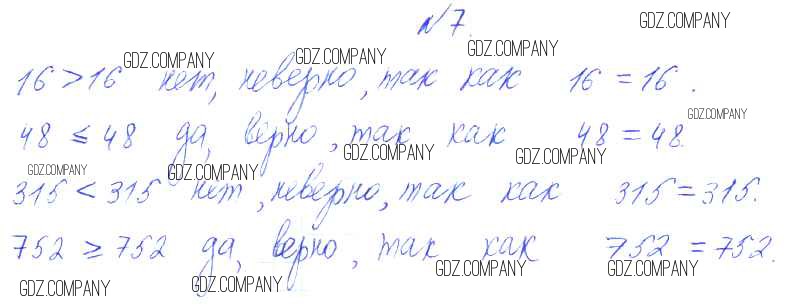 №7.
GDZ.COMPANY
GDZ.COMPANY GDZ.COMPANY GDZ.COMPANY
16 > 16 нет, неверно, так как 16 = 16.
GDZ.COMPANY
48 ≤ 48 да, верно, так как 48 = 48.
GDZ.COMPANY GDZ.COMPANY GDZ.COMPANY GDZ.COMPANY
315 < 315 нет, неверно, так как 315 = 315.
752 ≥ 752 да, верно, так как 752 = 752.
GDZ.COMPANY GDZ.COMPANY GDZ.COMPANY GDZ.COMPANY